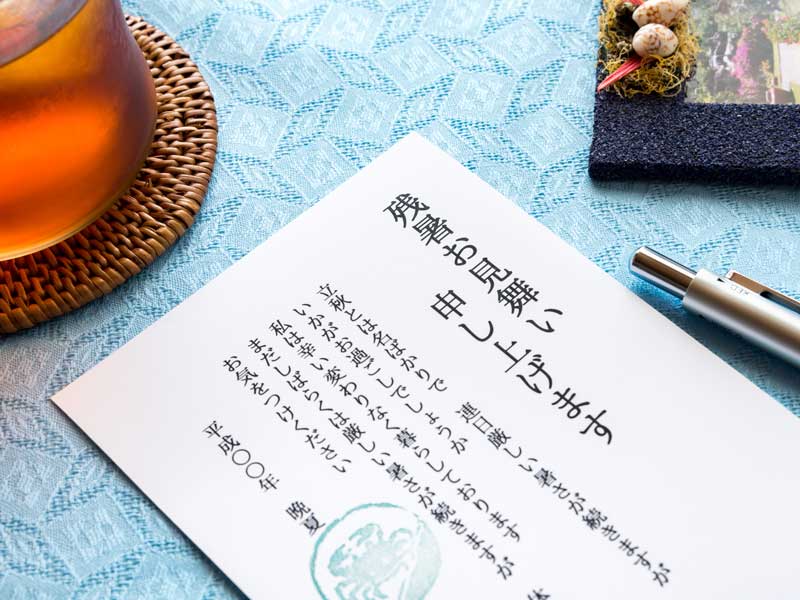 残暑お見舞い
申し上げます
立秋とは名ばかりで　連日厳しい暑さが続きますが
いかがお過ごしでしょうか
私は幸い変わりなく暮らしております
まだしばらくは厳しい暑さが続きますが　体
お気をつけください
平成〇〇年　晩夏